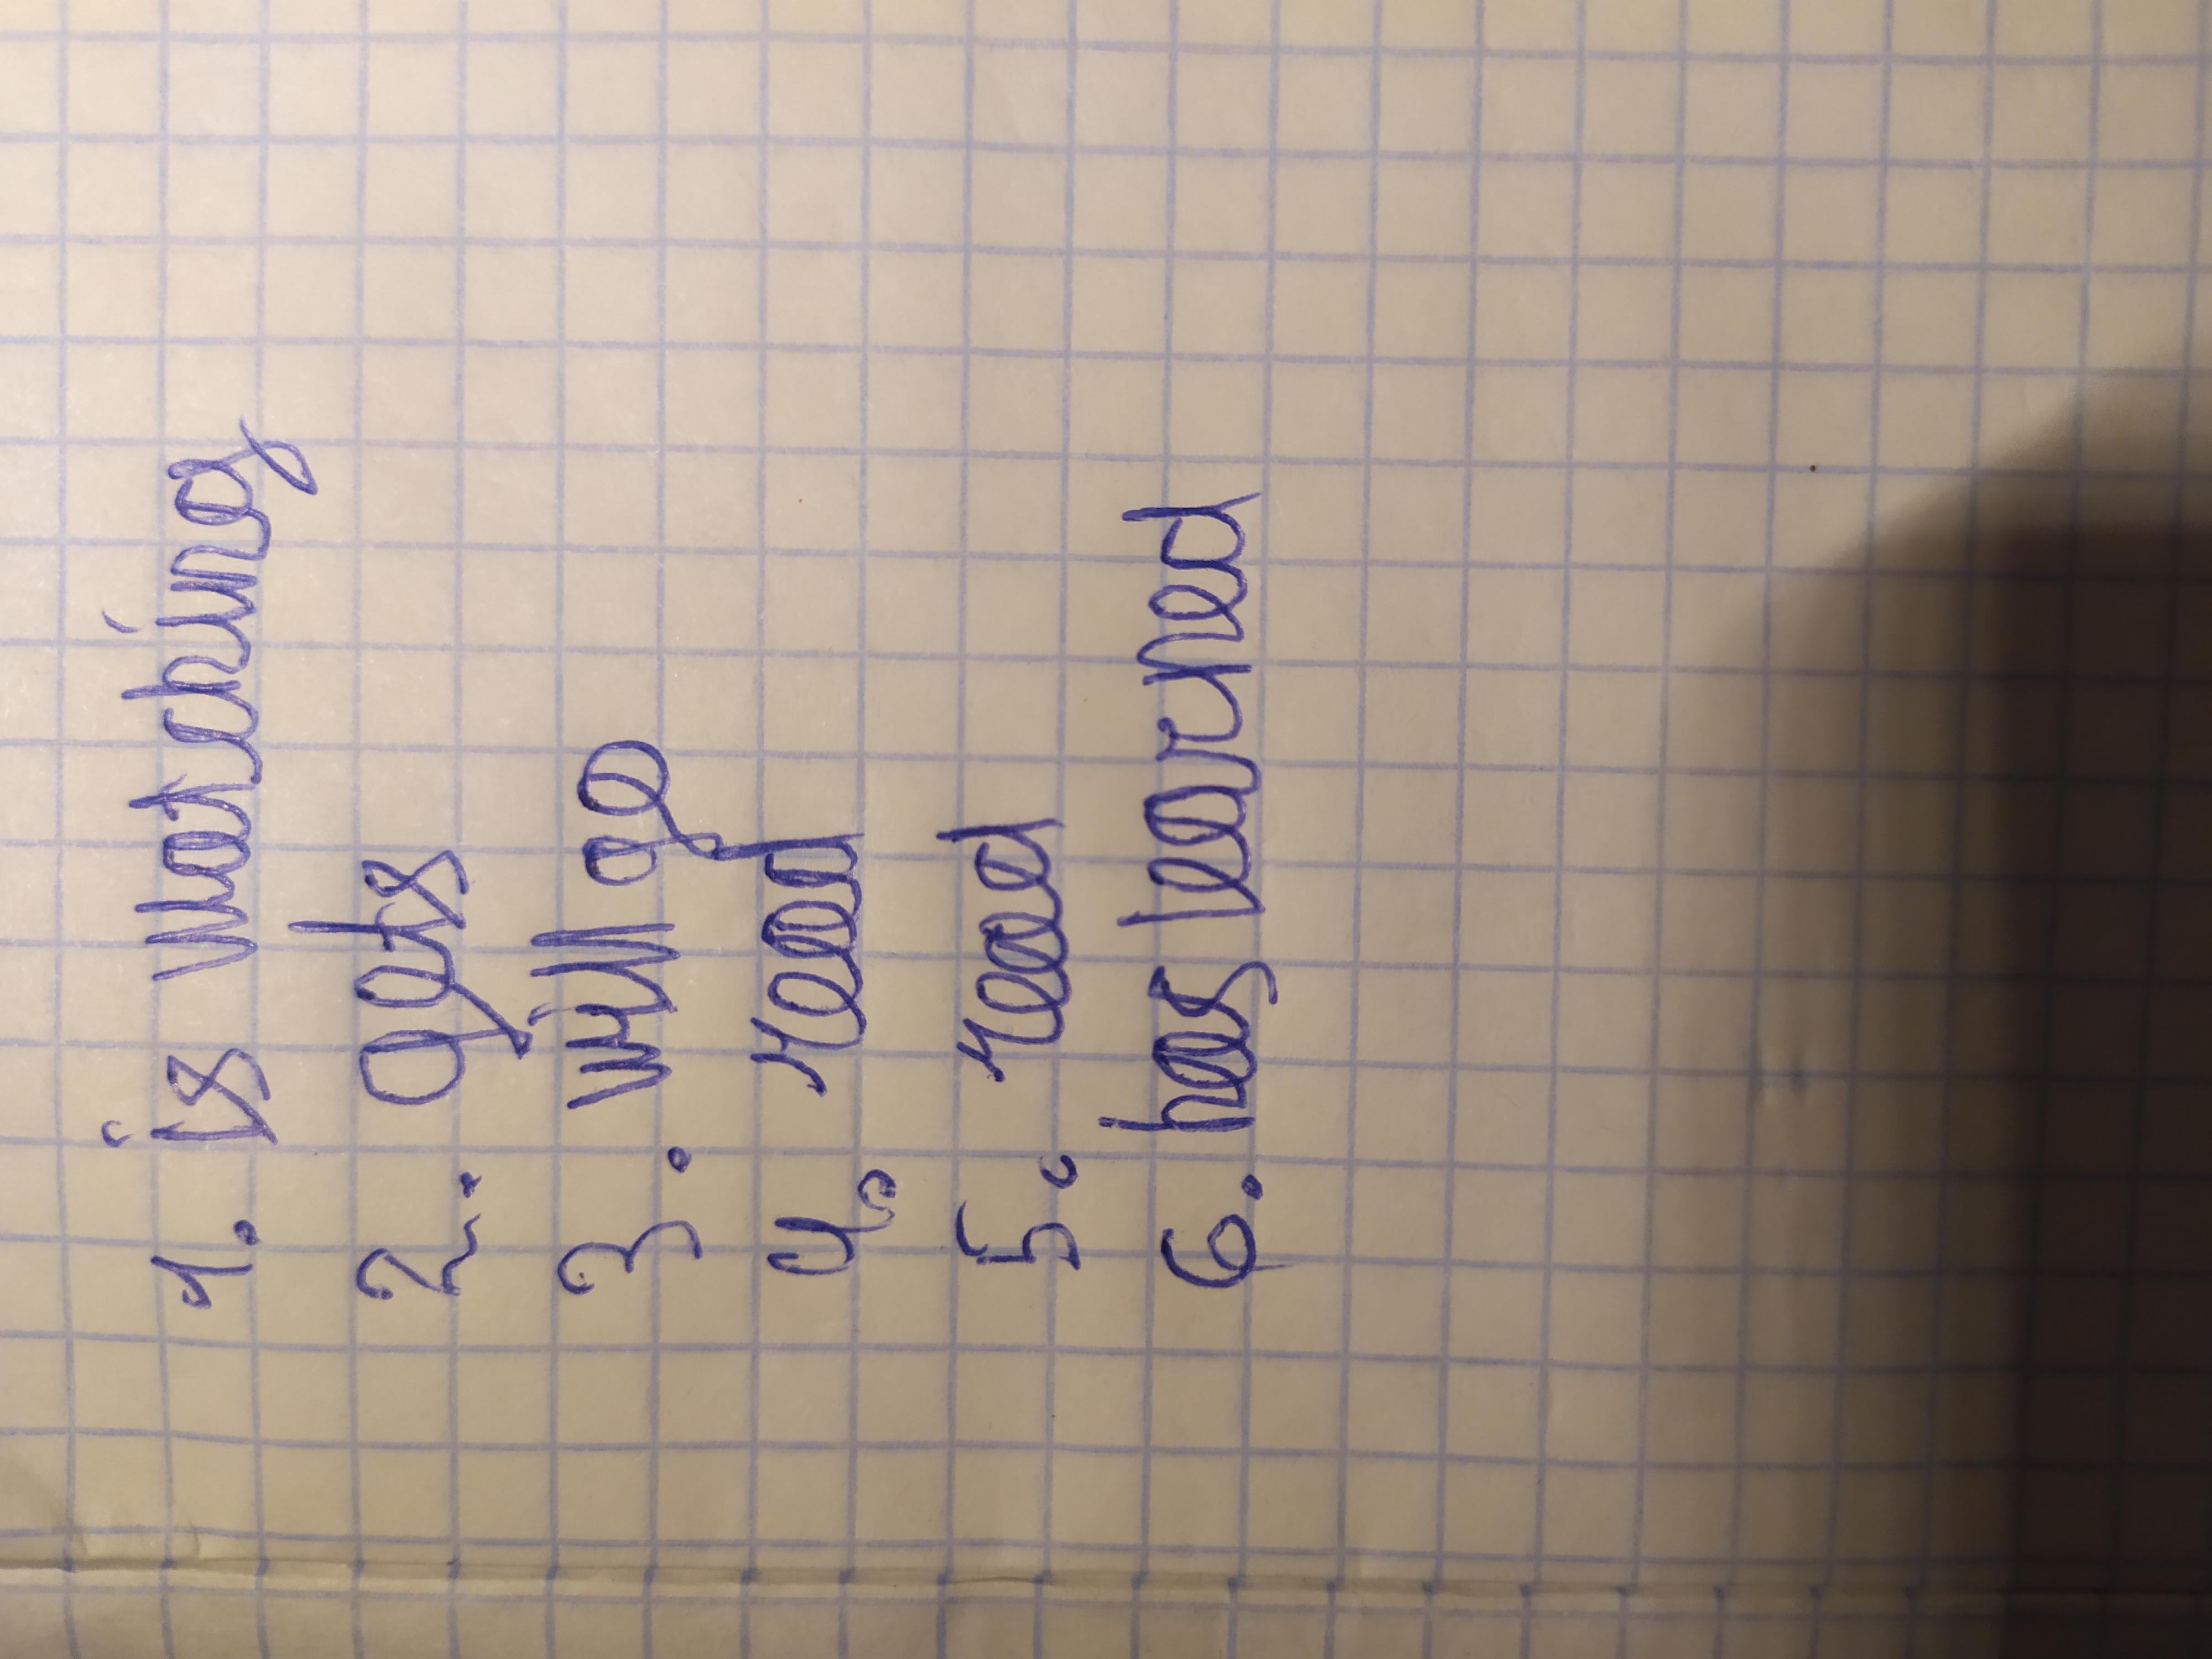 1. is watching
2. gets
3. will go
4. read
5. read
6. has learned